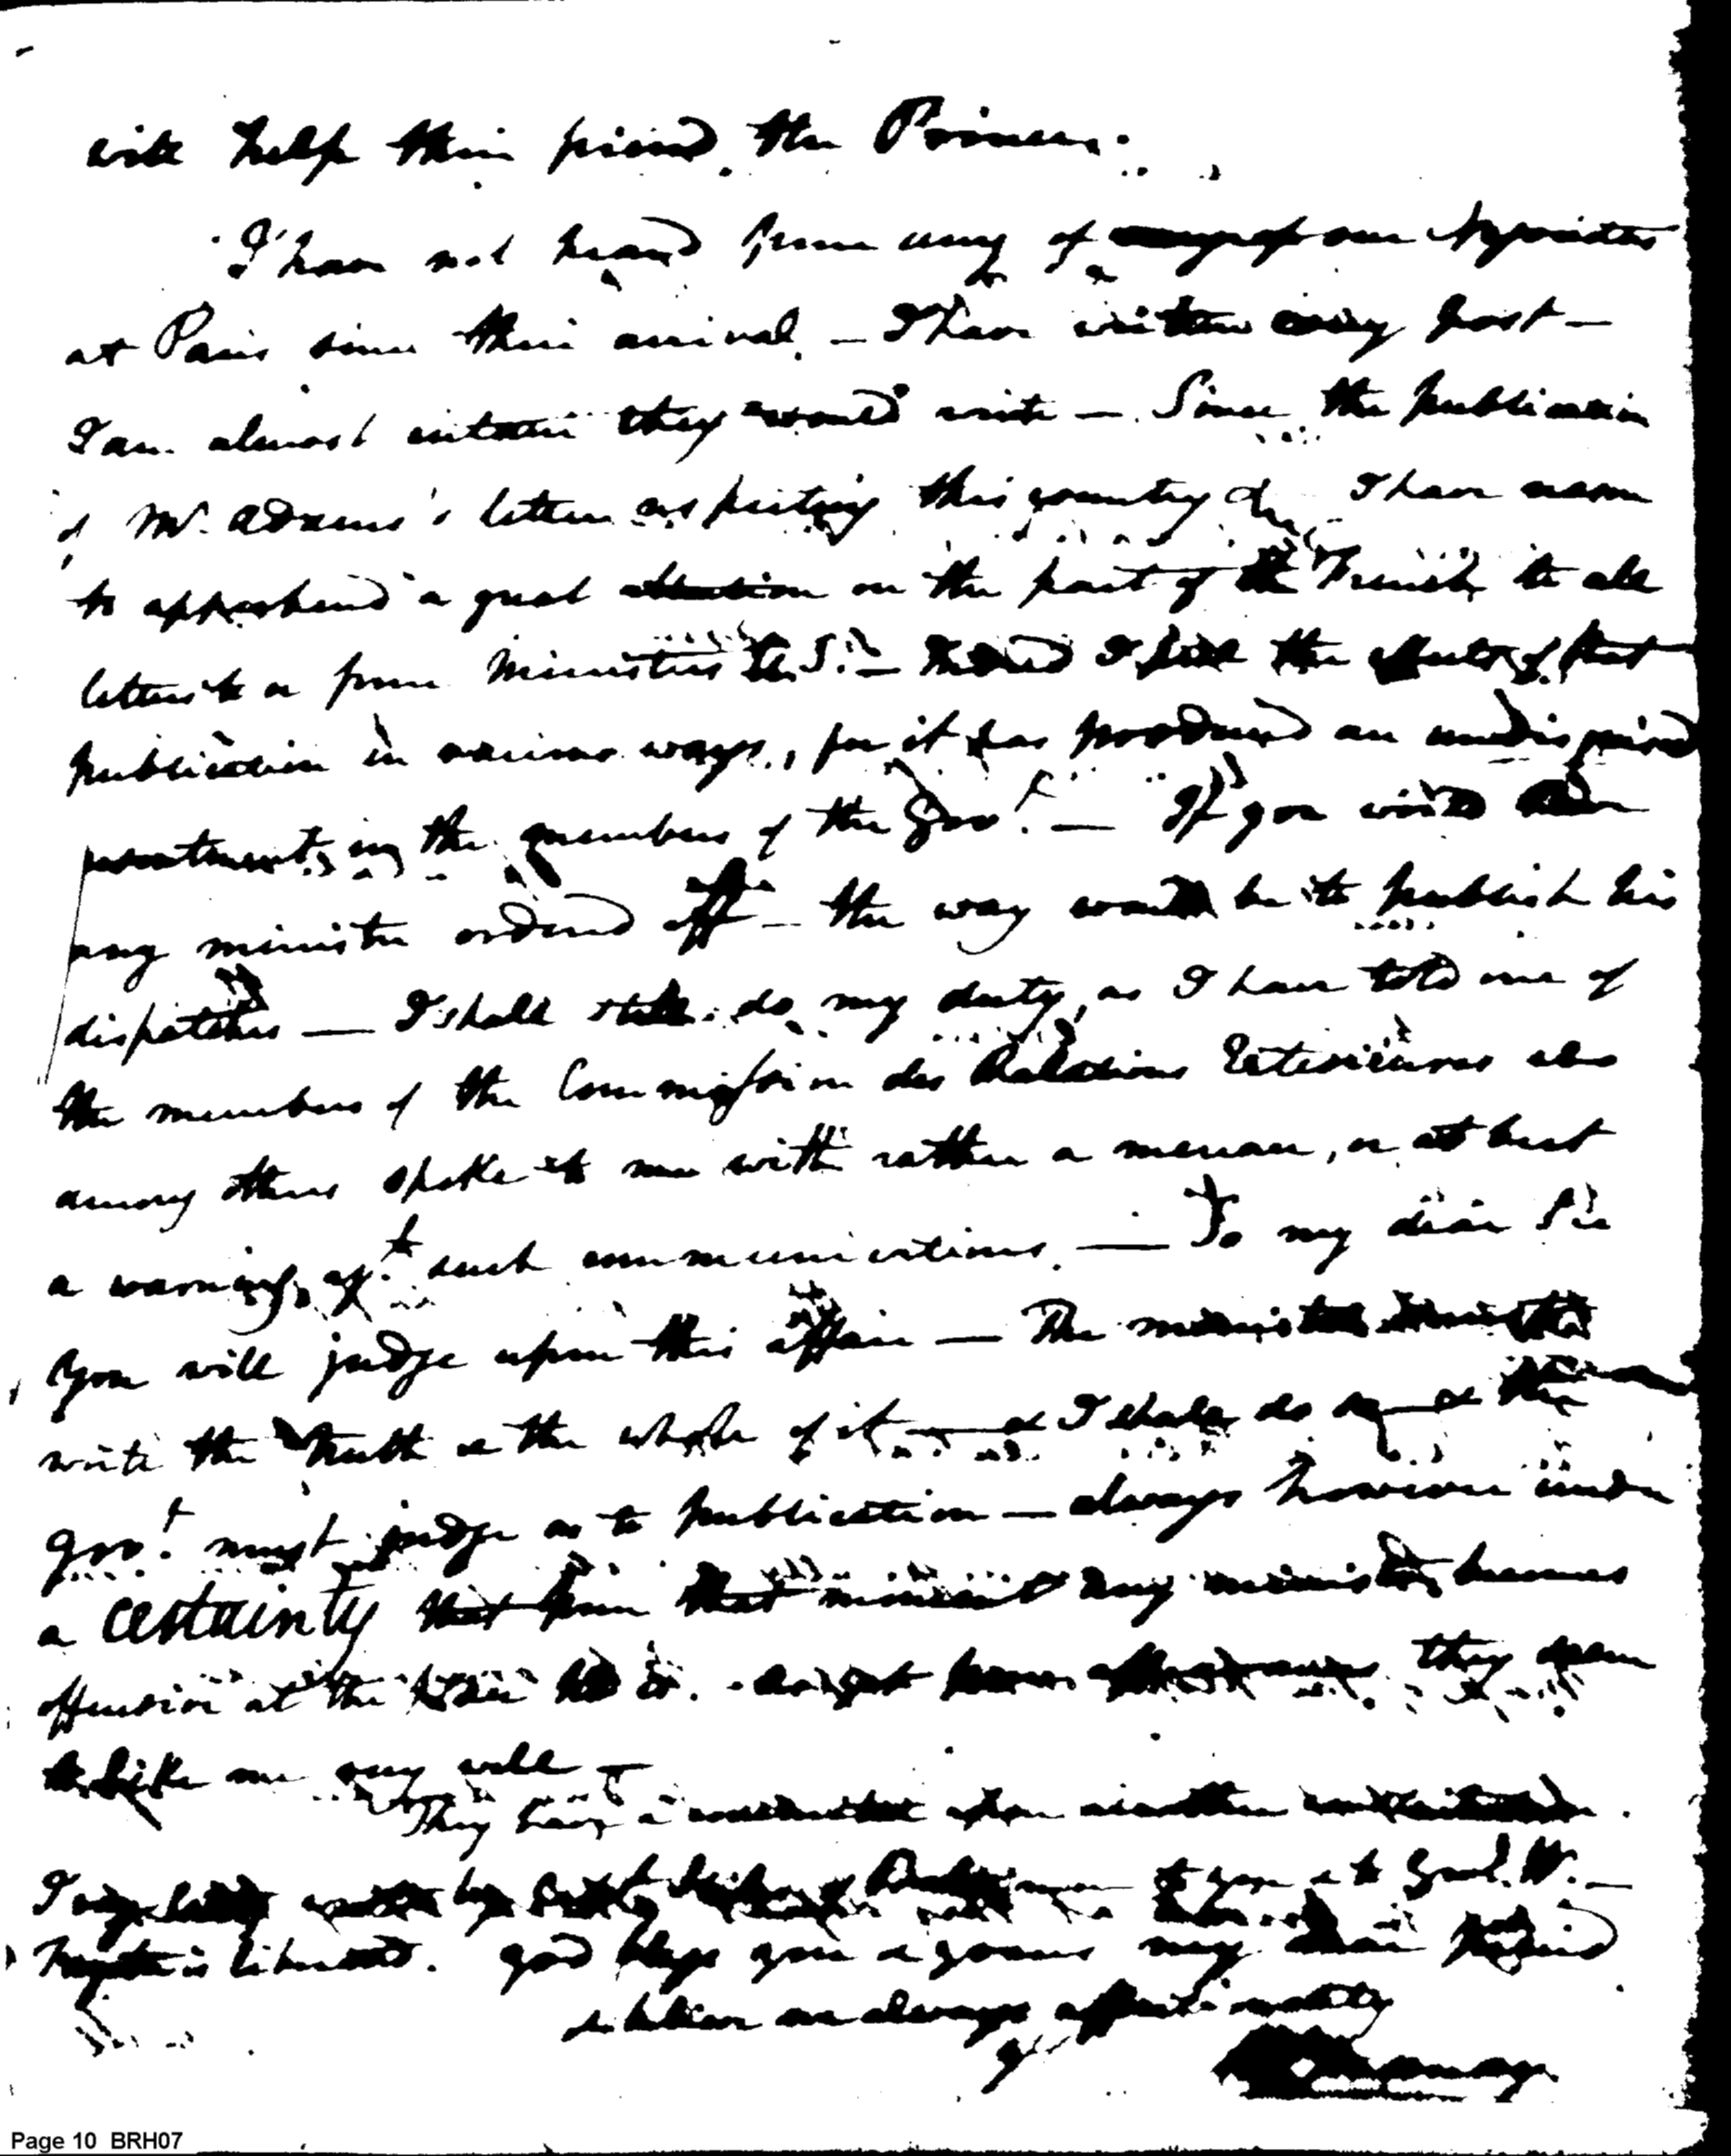 will help their friend the Princess.
I have not heard from any of our Negociators
at Paris since their arrival – I have written every post –
I am almost certain they would write – Since the publication
of Mr. Adams's letter respecting this country &c I have reason
to apprehend a great attention on the part of the French to all
letters to or from Ministers U.S. – Indeed I feel the effects of that
publication in various ways, for it has produced an undisguised
resentment in the members of the Govt. – If you wish
any minister ordered off – the way would be to publish his
dispatches — I shall still do my duty, as I have told one of
the members of the Commission des Relations Exterieures who
among others spoke to me with rather a menace, or at best
a warning agt. such communications. — So my dear Sir
You will judge upon this affair — The minister
write the truth & the whole of it — & I shall do so — & the
Govt. must judge as to publication — always however under
a certainty that from that moment any minister becomes
offensive at the they seem
to like me very well –
They have a
I by to you & to Genl. W. —
God bless you & yours my dear friend
& believe me always affectionately
Yrs
Page 10 BRH07